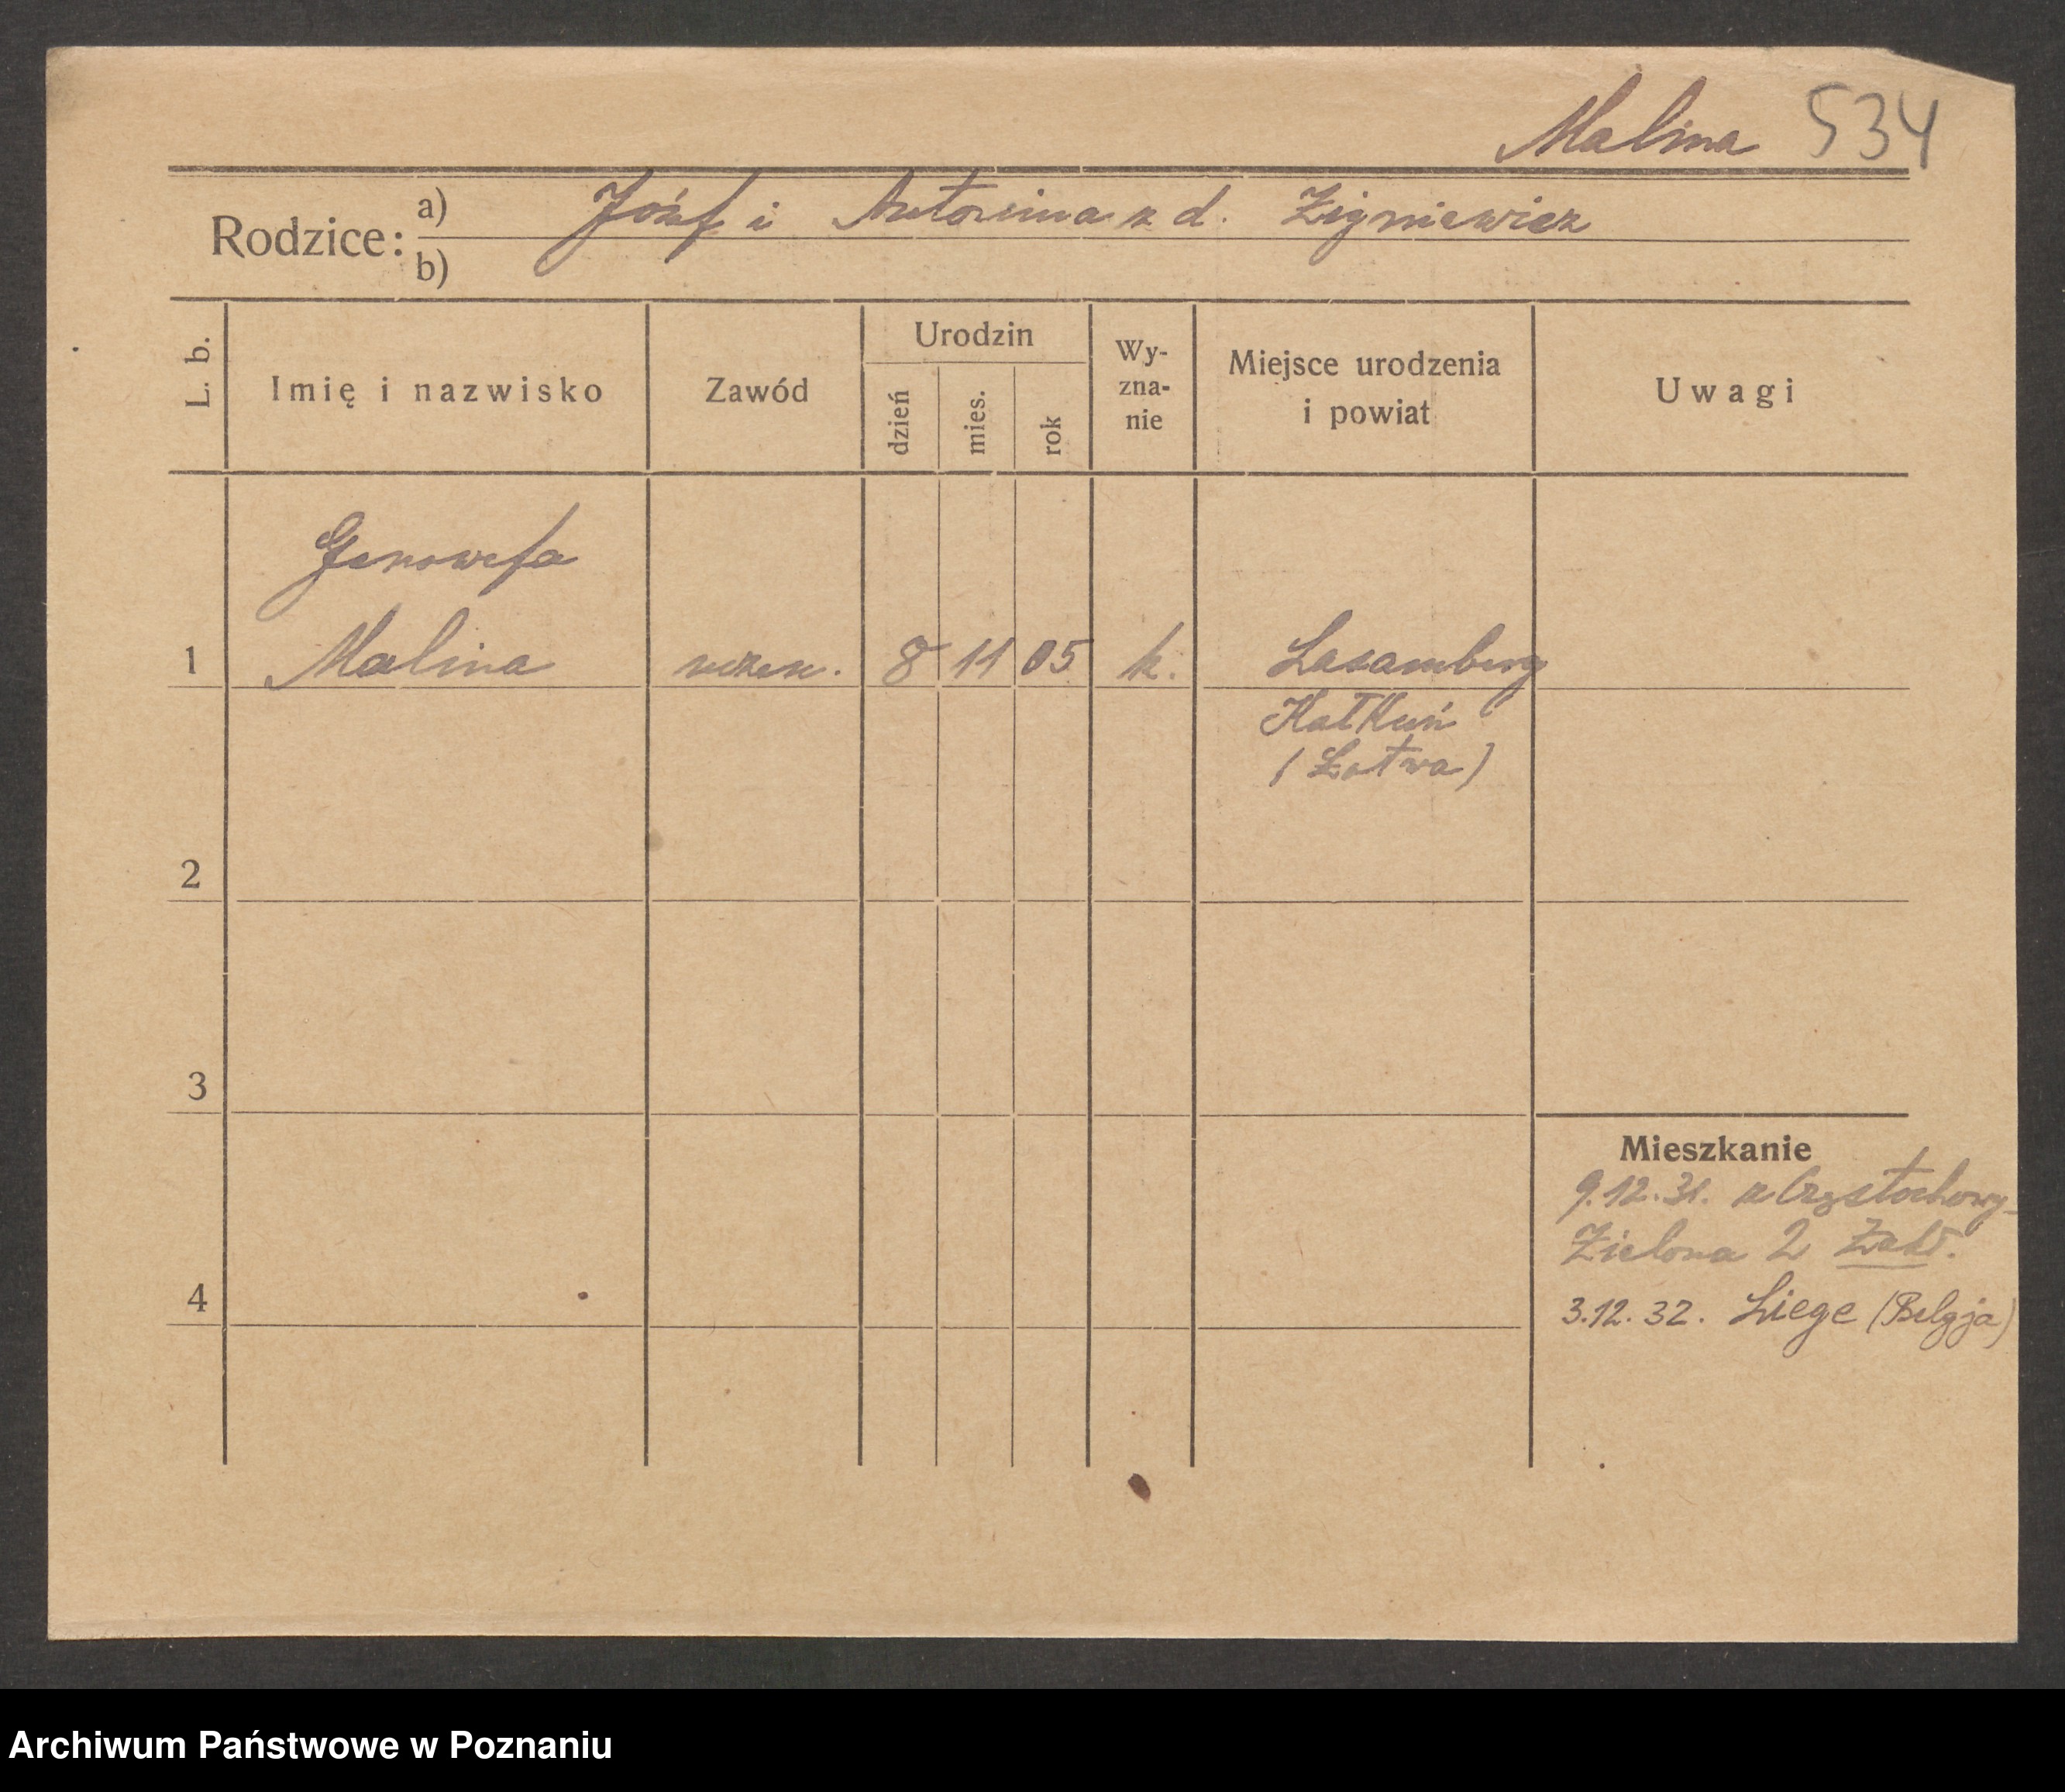 Malina 534
Rodzice: a) Józef i Antonina z d. Zigniewicz
b)
L. b.
Imię i nazwisko
Zawód
Urodzin
dzień
mies.
rok
Wy-
zna-
nie
Miejsce urodzenia
i powiat
Uwagi
Genowefa
1 Malina uczen. 8 11 05 k. Lasamberg
Kałkuń
(Łotwa)
2
3
Mieszkanie
9.12.31. z Częstochowy
Zielona 2 Zakł.
4
3.12.32. Liege (Belgja)
Archiwum Państwowe w Poznaniu